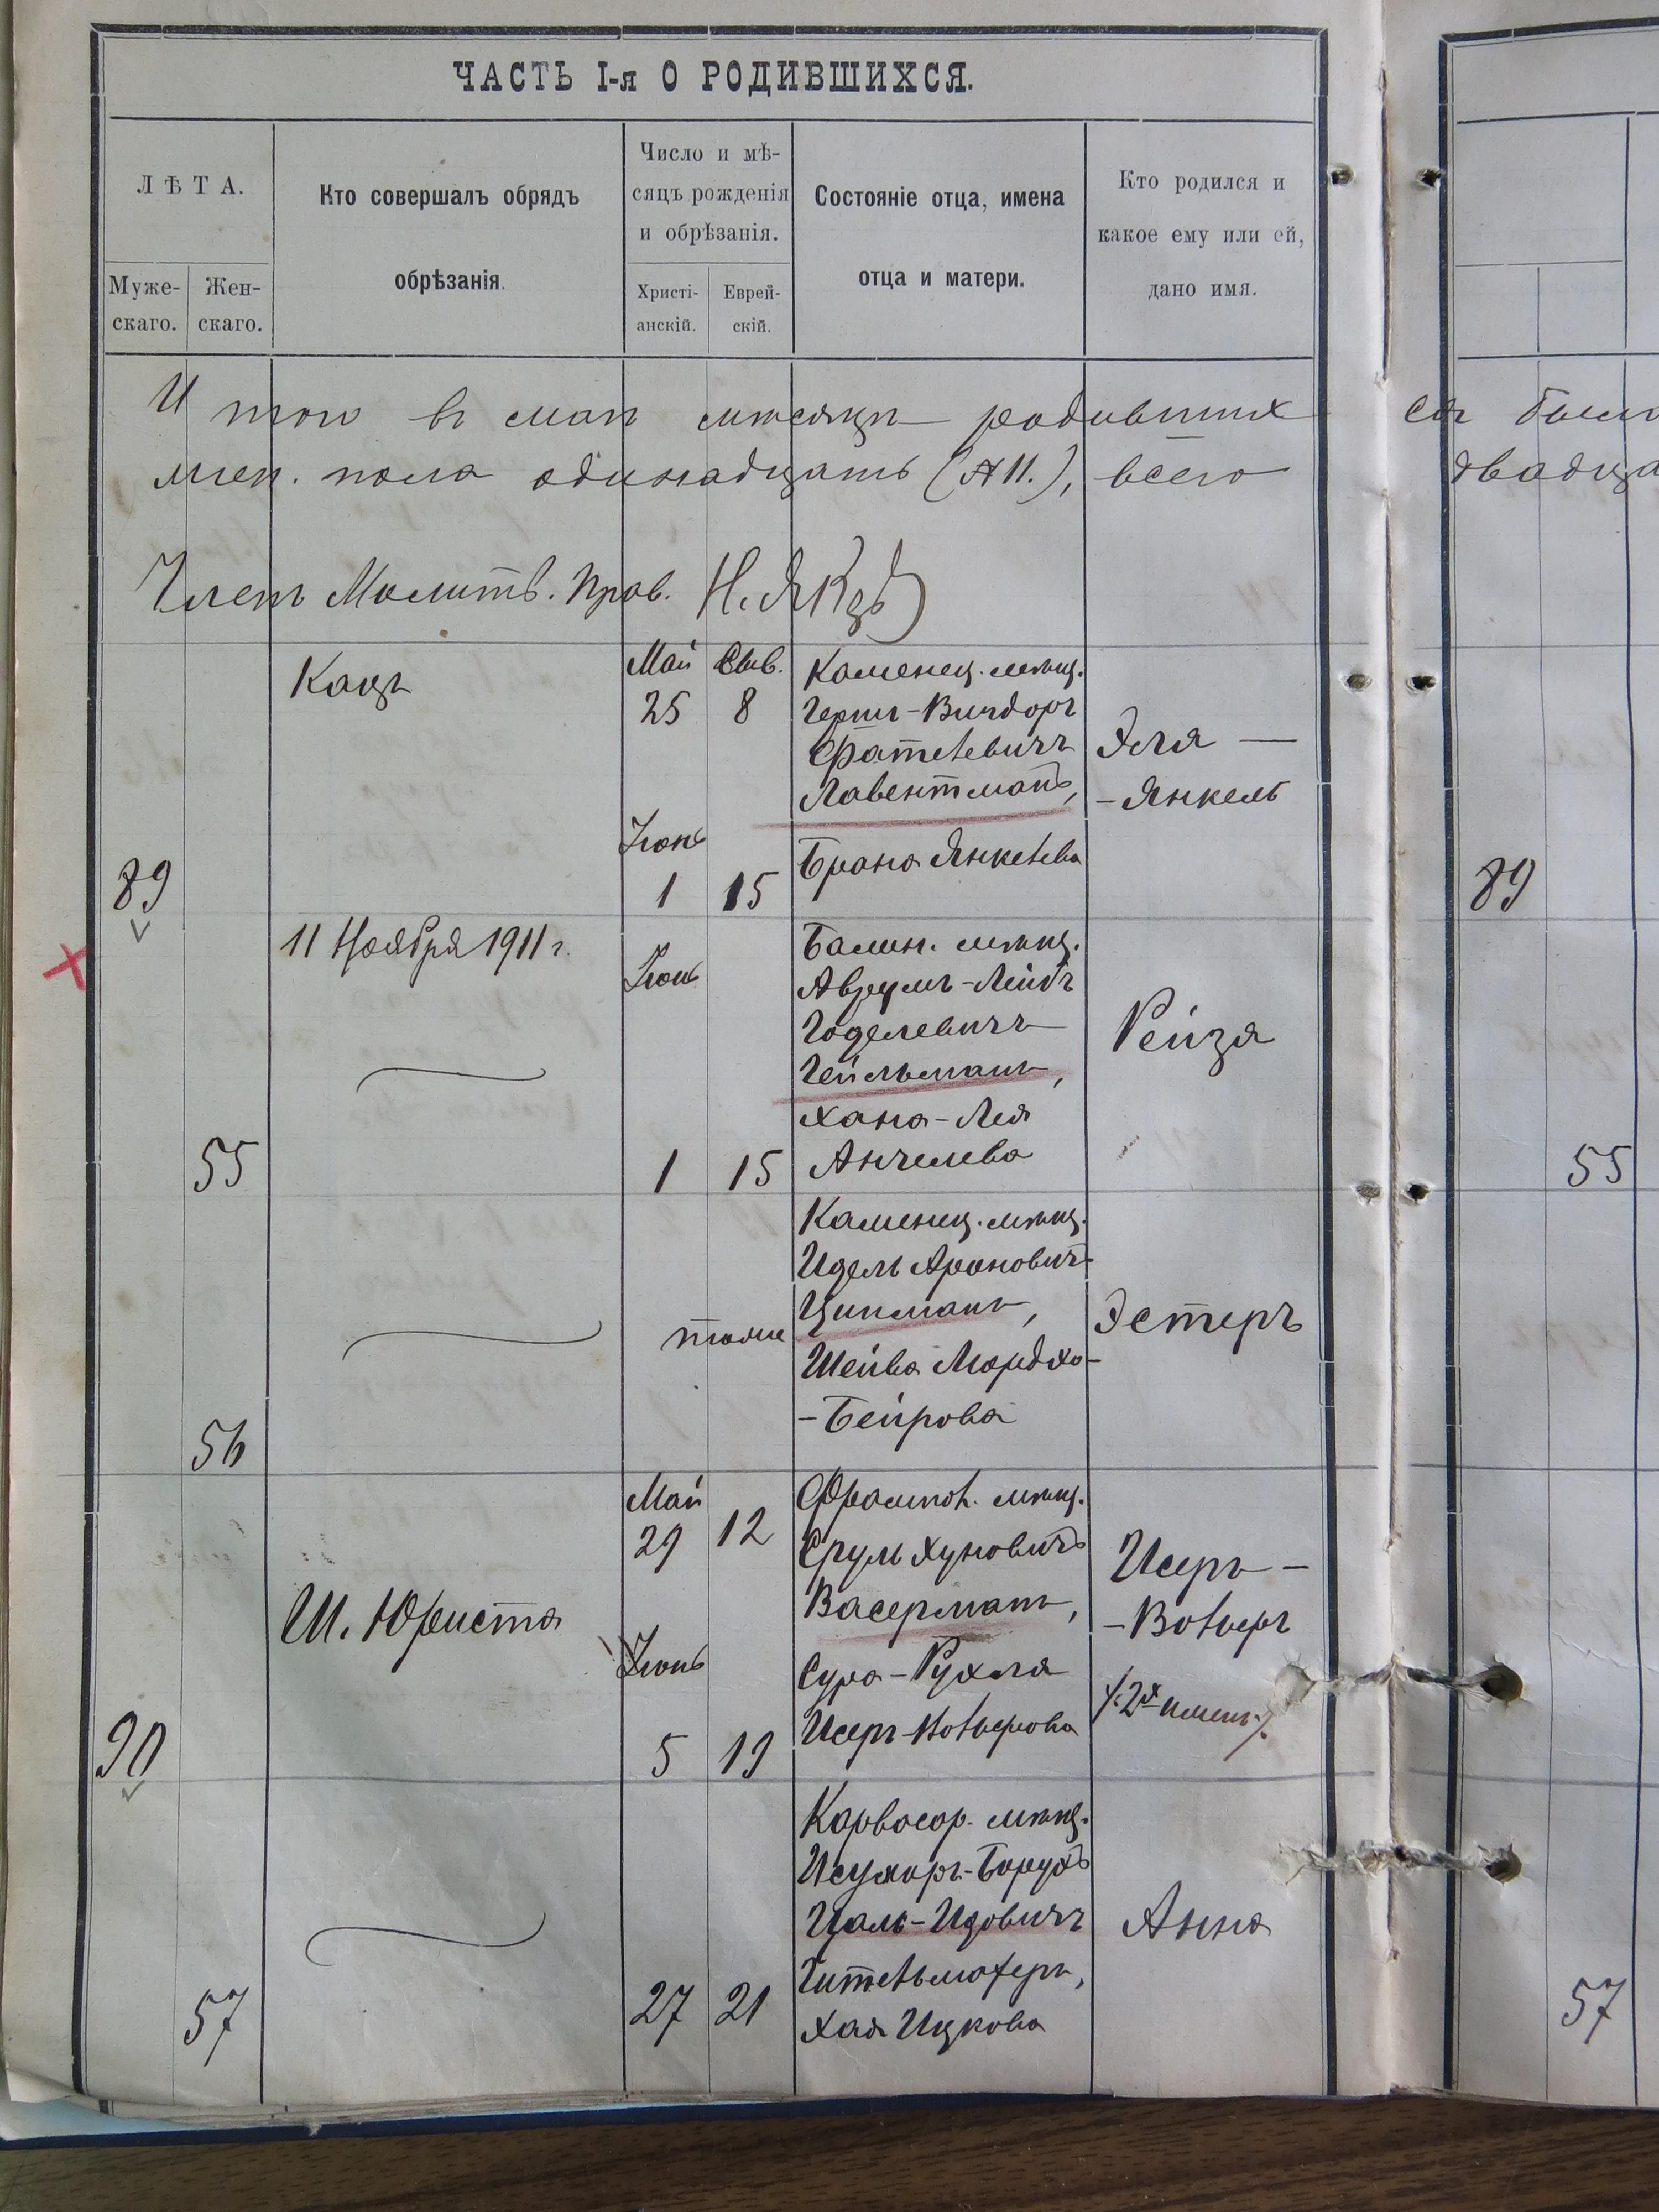 ЧАСТЬ I-я О РОДИВШИХСЯ.
ЛѢТА.
Муже-
скаго.
Жен-
скаго.
Кто совершалъ обрядъ
обрѣзанія.
Число и мѣ-
сяцъ рожденія
и обрѣзанія.
Христі-
анскій.
Еврей-
скій.
Состояніе отца, имена
отца и матери.
Кто родился и
какое ему или ей,
дано имя.
Итого въ маѣ мѣсяцѣ родивших ся было
жен. пола одинадцать (11.), всего двадца
Членъ Молитв. Прав.
89
Кацъ
Май Сив.
25 8
Іюнь
1 15
Каменец. мѣщ.
Гершъ-Вигдоръ
Фателевичъ
Лавентманъ,
Брана Янкелева
Эля —
-Янкель
89
55
11 Ноября 1911 г.
Іюнь
1 15
Балин. мѣщ.
Аврумъ-Лейбъ
Годелевичъ
Гейльманъ,
Хана-Лея
Анчелева
Рейзя
55
56
тоже
Каменец. мѣщ.
Идель Ароновичъ
Ципманъ,
Шейва Мордхо-
-Бейрова
Эстеръ
90
Ш. Юриста
Май
29 12
Іюнь
5 19
Фрампол. мѣщ.
Сруль Хуновичъ
Васерманъ,
Сура-Рухля
Исеръ-Вольфова
Исеръ-
-Вольфъ
/:2х имен:/
57
27 21
Карвасар. мѣщ.
Исухоръ-Борухъ
Цаль-Идовичъ
Гительмахеръ,
Хая Ицкова
Анна
57